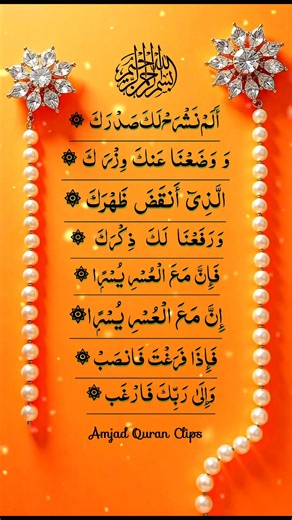 بسم الله الرحمن الرحيم
أَلَمْ نَشْرَحْ لَكَ صَدْرَكَ ۞
وَ وَضَعْنَا عَنكَ وِزْرَكَ ۞
الَّذِىٓ أَنقَضَ ظَهْرَكَ ۞
وَرَفَعْنَا لَكَ ذِكْرَكَ ۞
فَإِنَّ مَعَ الْعُسْرِ يُسْرًا ۞
إِنَّ مَعَ الْعُسْرِ يُسْرًا ۞
فَإِذَا فَرَغْتَ فَانصَبْ ۞
وَإِلَىٰ رَبِّكَ فَارْغَب ۞
Amjad Quran Clips